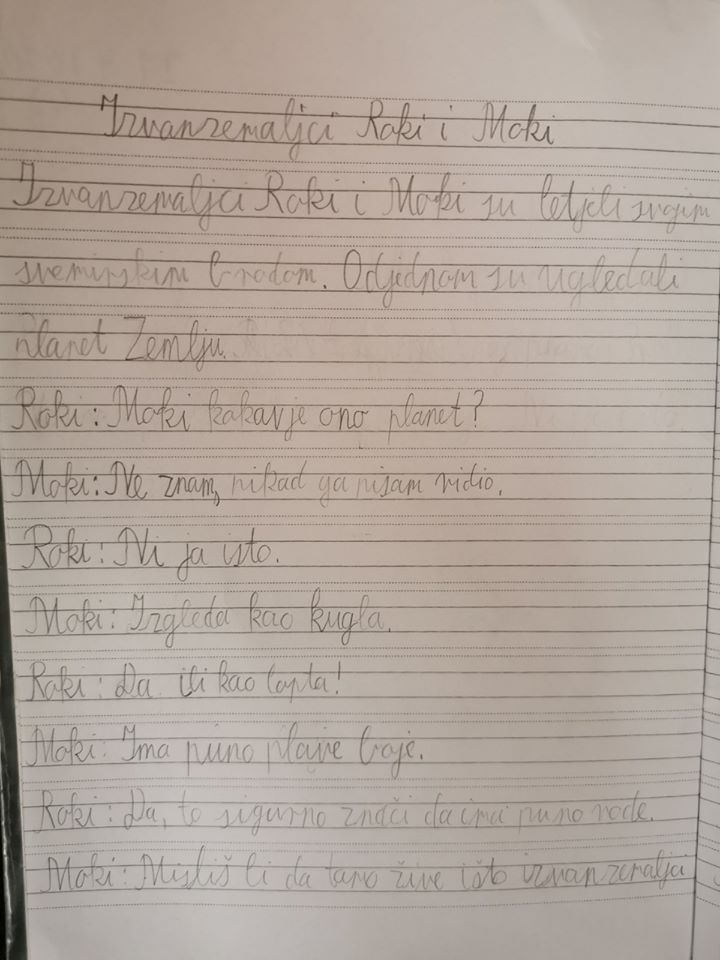 Izvanzemaljci Roki i Moki
Izvanzemaljci Roki i Moki su letjeli svojim
svemirskim brodom. Odjednom su ugledali
planet Zemlju.
Roki: Moki kakav je ono planet?
Moki: Ne znam, nikad ga nisam vidio.
Roki: Ni ja isto.
Moki: Izgleda kao kugla.
Roki: Da ili kao lopta!
Moki: Ima puno plave boje.
Roki: Da, to sigurno znači da ima puno vode.
Moki: Misliš li da tamo žive isto izvanzemaljci